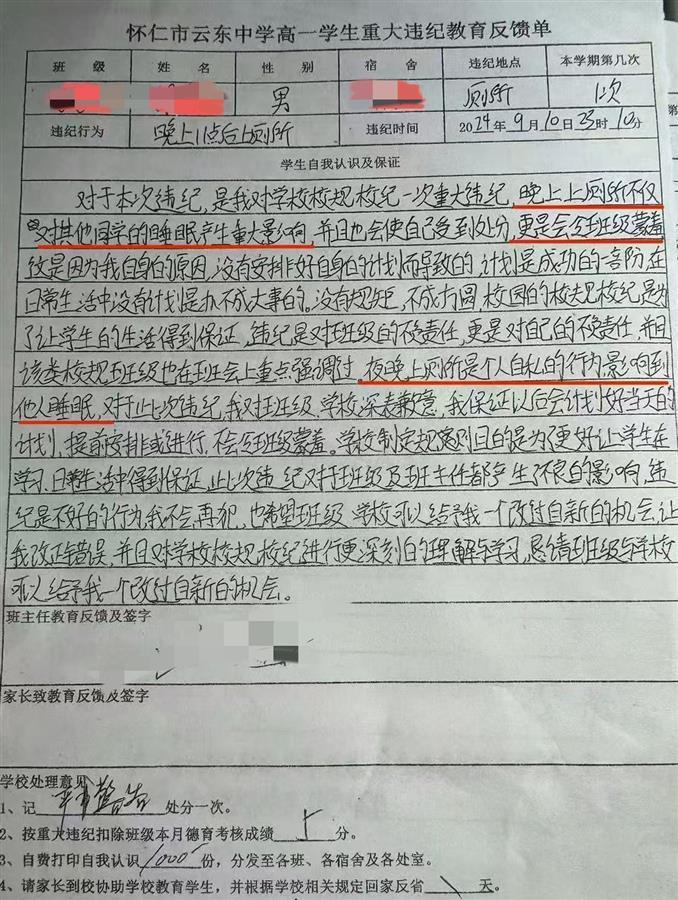 怀仁市云东中学高一学生重大违纪教育反馈单
班 级 姓 名 性 别 宿 舍 违纪地点 本学期第几次
男 厕所 1次
违纪行为 晚上11点后上厕所 违纪时间 2024年9月10日23时10分
学生自我认识及保证
对于本次违纪,是我对学校校规校纪一次重大违纪,晚上上厕所不仅
对其他同学的睡眠产生重大影响,并且也会使自己受到处分,更是会令班级蒙羞
这是因为我自身的原因,没有安排好自身的计划而导致的,计划是成功的一部份,在
日常生活中没有计划是办不成大事的。没有规矩,不成方圆,校园的校规校纪,是为
了让学生的生活得到保证,违纪是对班级的不负责任,更是对自己的不负责任,并且
该类校规班级也在班会上重点强调过,夜晚上厕所是个人自私的行为,影响到
他人睡眠,对于此次违纪,我对班级、学校深表歉意,我保证以后会计划好当天的
计划,提前安排或进行,不会令班级蒙羞。学校制定规章原则目的是为了更好让学生在
学习、日常生活中得到保证,此次违纪对于班级及班主任都产生了不良的影响,违
纪是不好的行为,我不会再犯,也希望班级、学校可以给予我一个改过自新的机会,让
我改正错误,并且对学校校规、校纪进行更深刻的理解与学习,恳请班级与学校
可以给予我一个改过自新的机会。
班主任教育反馈及签字
家长致教育反馈及签字
学校处理意见
1、记 严重警告 处分一次。
2、按重大违纪扣除班级本月德育考核成绩 分。
3、自费打印自我认识 1000 份,分发至各班、各宿舍及各处室。
4、请家长到校协助学校教育学生,并根据学校相关规定回家反省 \ 天。